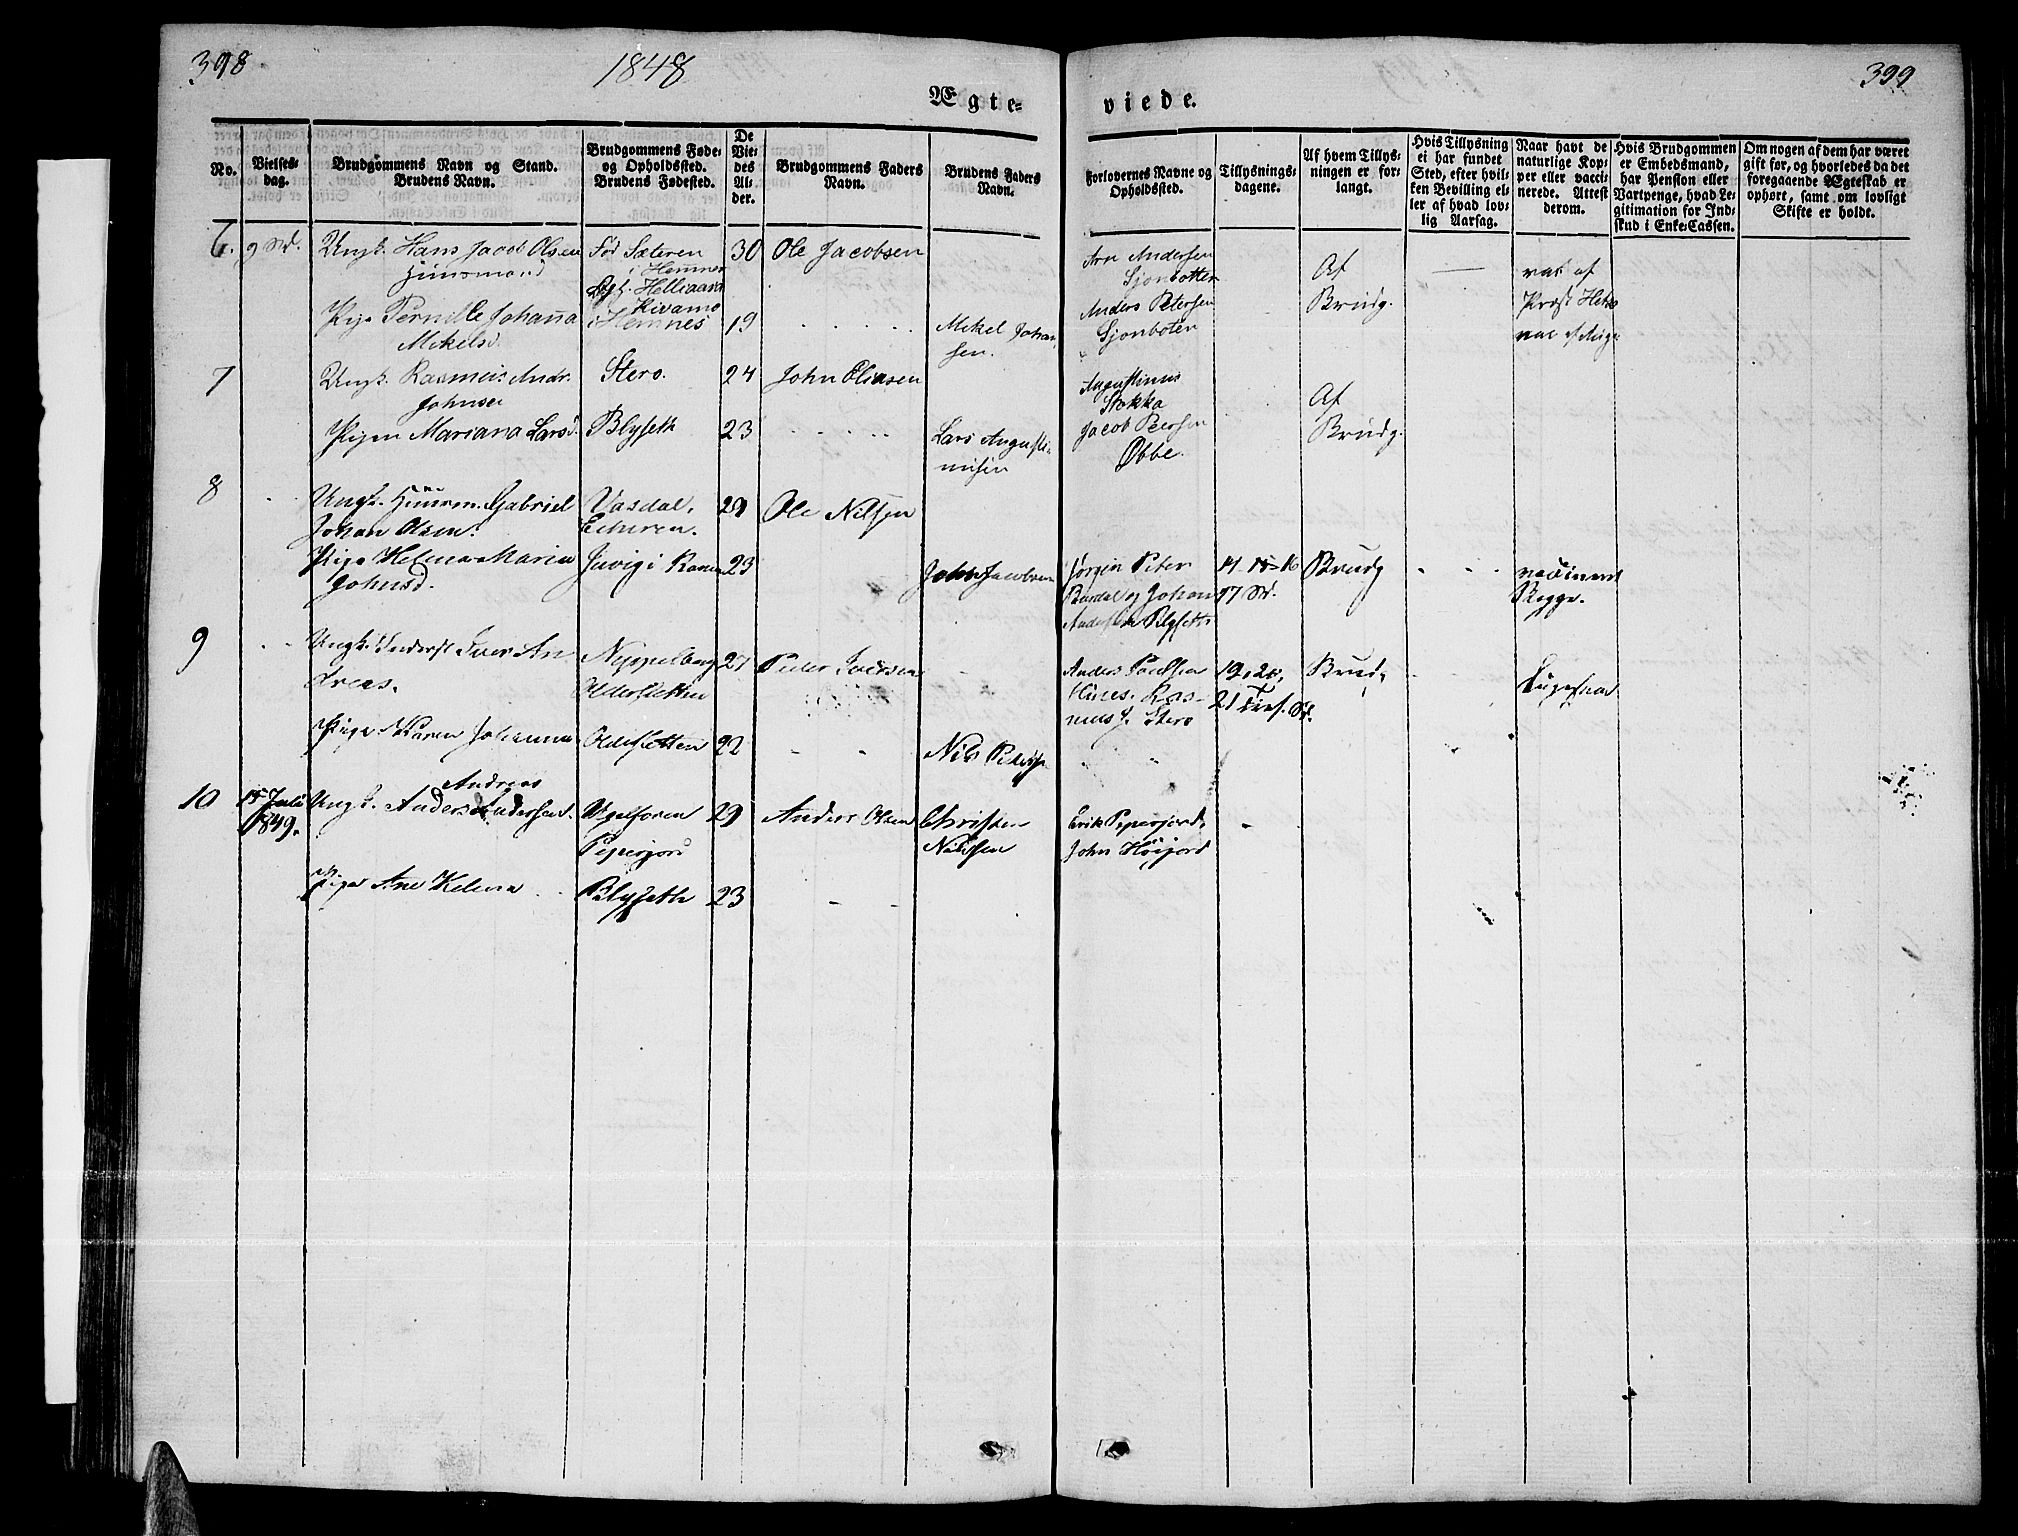 398
1848
399
Ægte-
viede.
No.
Vielses-
dag.
Brudgommens Navn og Stand.
Brudens Navn.
Brudgommens Føde-
og Opholdssted.
Brudens Fødested.
De
Vie-
des
Al-
der.
Brudgommens Faders
Navn.
Brudens Faders
Navn.
Forlovernes Navne og
Opholdssted.
Tillysnings-
dagene.
Af hvem Tillys-
ningen er for-
langt.
Hvis Tillysning
ei har fundet
Sted, efter hvil-
ken Bevilling el-
ler af hvad lov-
lig Aarsag.
Naar havt de
naturlige Kop-
per eller vacci-
nerede. Attest
derom.
Hvis Brudgommen
er Embedsmand,
har Pension eller
Vartpenge, hvad Le-
gitimation for Ind-
skud i Enke-Cassen.
Om nogen af dem har været
gift før, og hvorledes da det
foregaaende Ægteskab er
ophørt, samt om lovligt
Skifte er holdt.
6. Ungk. Hans Jacob Olsen
Huusmand
Fød Sæteren
i Hemnes
30 Ole Jacobsen
Arn Andersen
Sjonbotten
Af
Brudg.
vac af
Præst
Pige Pernille Johanna
Mikelsd.
Hemnes 19
Mikel Johan-
sen.
Anders Petersen
Sjonboten
vac af
7 Ungk. Rasmus Andr.
Johnsen
Stero. 24 John Eliasen
Augustinus
Stokka
Af
Brudg.
Pigen Mariana Larsd.
Blyseth 23
Lars Augusti-
nusen
Jacob Petersen
Øbbe.
8 Ungk. Huusm. Gabriel
Johan Olsen.
Vasdal, 29 Ole Nilsen
Pige Helena Maria
Johnsd.
i Ranen 23
John Jacobsen
Jørgen Peter
og Johan
Andersen Blyseth
14. 15. 16
17 Sd.
Brudg
vaccineret
Rygge.
9 Ungk. Inderst Iver An-
dreas.
Neppelberg
Oldersletten
27 Peder Iversen
Anders
Ras-
mus J. Stero
19, 20,
21 Trinf. Sd.
Brudg
Ligesaa
Pige Karen Johanna
Oldersletten 22
Nils Peders
10 15 Juli
1849.
Andreas
Ungk. Anders Andersen.
Ugelforen
Pepersjord
29 Anders Olsen
Christen
Nilssen
Erik Pepersjord,
John Høijord
Pige Ane Helena
Blyseth 23